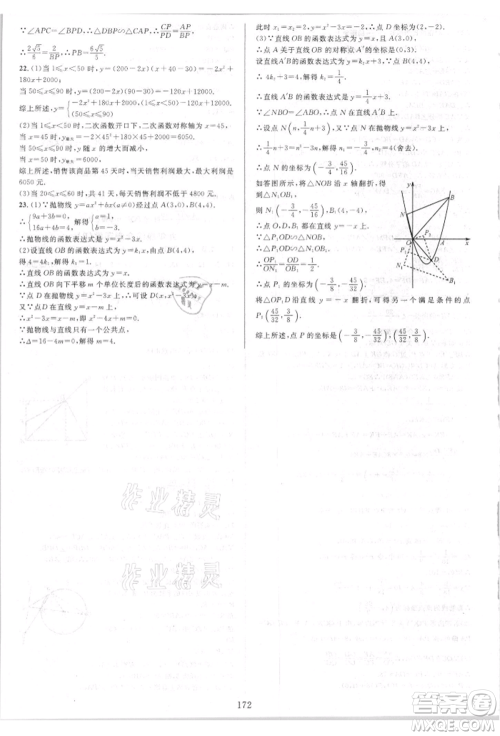 ∵∠APC=∠BPD,∴△BDP∽△CAP,∴CP/PD=AP/BP,
22.(1)当1≤x<50时,y=(200-2x)(x+40-30)=-2x²+
180x+2000,
当50≤x≤90时,y=(200-2x)(90-30)=-120x+12000.
(2)当1≤x<50时,二次函数开口下,二次函数对称轴为x=45,
当x=45时,y最大=-2×45²+180×45+2000=6050,
当50≤x≤90时,y随x的增大而减小,
当x=50时,y最大=6000,
综上所述,销售该商品第45天时,当天销售利润最大,最大利润是
6050元.
(3)当20≤x≤60时,每天销售利润不低于4800元.
23.(1)∵抛物线y=ax²+bx(a≠0)经过A(3,0),B(4,4),
∴抛物线的函数表达式是y=x²-3x.
(2)设直线OB的函数表达式为y=k₁x,由点B(4,4),
得4=4k₁,解得k₁=1.
∴直线OB的函数表达式为y=x.
∴直线OB向下平移m个单位长度后的函数表达式为y=x-m.
∵点D在抛物线y=x²-3x上,∴可设D(x,x²-3x).
又∵点D在直线y=x-m上,
∴x²-3x=x-m,即x²-4x+m=0.
∵抛物线与直线只有一个公共点,
∴Δ=16-4m=0,解得m=4.
此时x₁=x₂=2,y=x²-3x=-2,∴点D的坐标为(2,-2).
(3)∵直线OB的函数表达式为y=x,且A(3,0),
∴点A关于直线OB的对称点A′的坐标是(0,3).
设直线A′B的函数表达式为y=k₂x+3,过点B(4,4),
∴4k₂+3=4,解得k₂=1/4.
∴直线A′B的函数表达式是y=1/4x+3.
∵∠NBO=∠ABO,∴点N在直线A′B上,
∴设点N(n,1/4n+3),又点N在抛物线y=x²-3x上,
∴1/4n+3=n²-3n,解得n₁=-3/4,n₂=4(舍去).
∴点N的坐标为(-3/4,45/16).
如答图所示,将△NOB沿x轴翻折,得到△N₁OB₁,
则N₁(-3/4,-45/16),B₁(4,-4),
∴O,D,B₁都在直线y=-x上.
∵△P₁OD∽△NOB,
∴△P₁OD∽△N₁OB₁,
∴点P₁为ON₁的中点.
∴OP₁/ON₁=OD/OB₁=1/2,
∴点P₁的坐标为(-3/8,-45/32).
将△P₁OD沿直线y=-x翻折,可得另一个满足条件的点
P₂(45/32,3/8).
综上所述,点P的坐标为(-3/8,-45/32)或(45/32,3/8).
y
N
B
O
A
x
D
N₁
B₁
作业精灵
作业精灵
172
答案圈
MXQE.COM